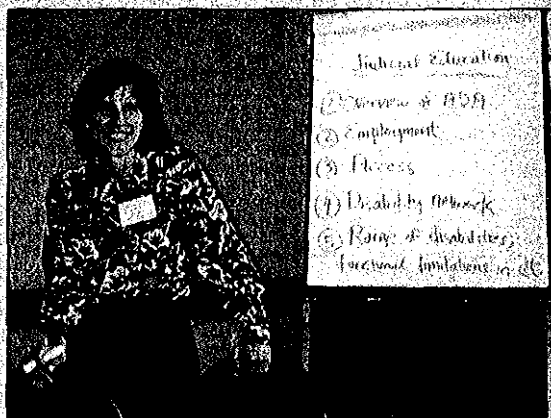 Judicial Education
(1) Overview of ADA
(2) Employment
(3) Access
(4) Disability Network
(5) Range of disabilities,
functional limitations in